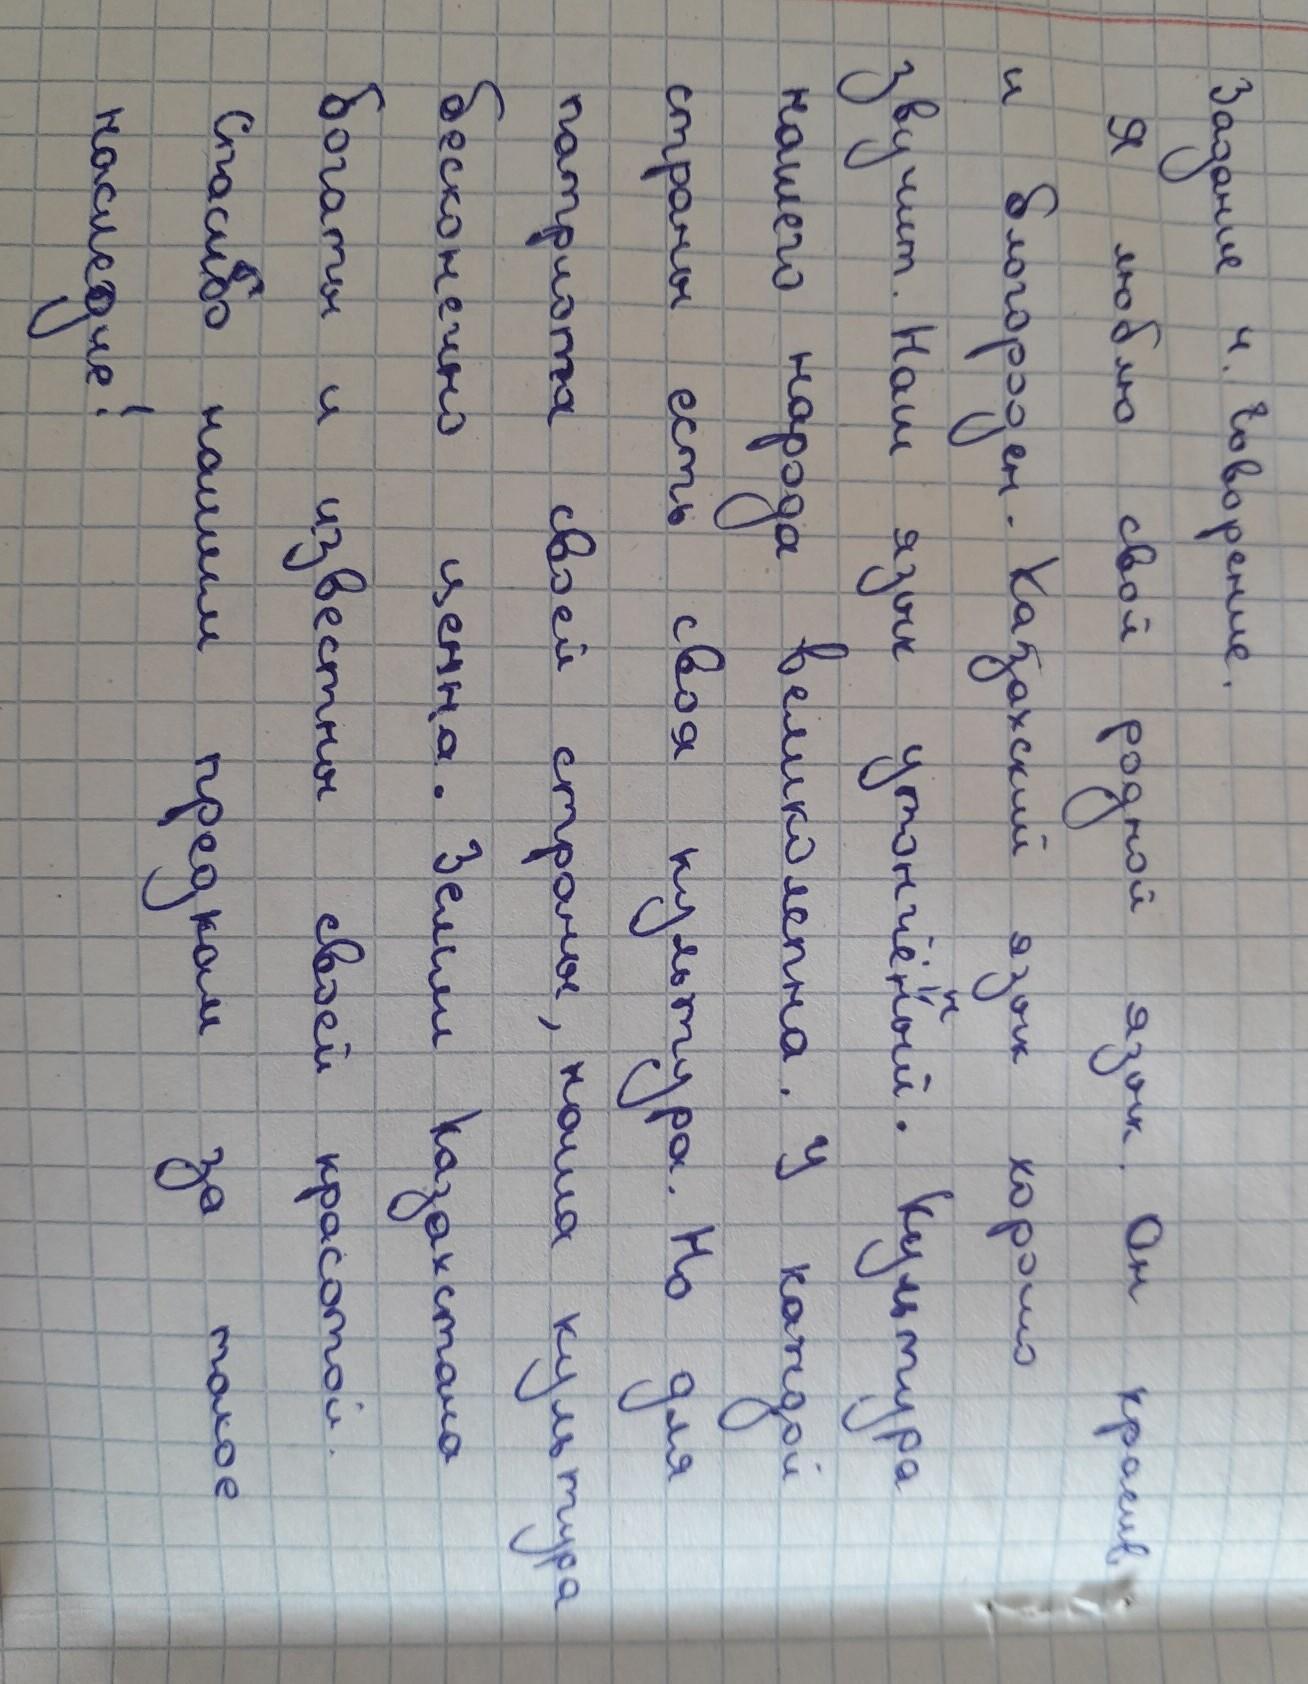 Задание 4. Говорение.
Я люблю свой родной язык. Он красив
и благороден. Казахский язык хорошо
звучит. Наш язык утончённый. Культура
нашего народа великолепна. У каждой
страны есть своя культура. Но для
патриота своей страны, наша культура
бесконечно ценна. Земли Казахстана
богаты и известны своей красотой.
Спасибо нашим предкам за такое
наследие!